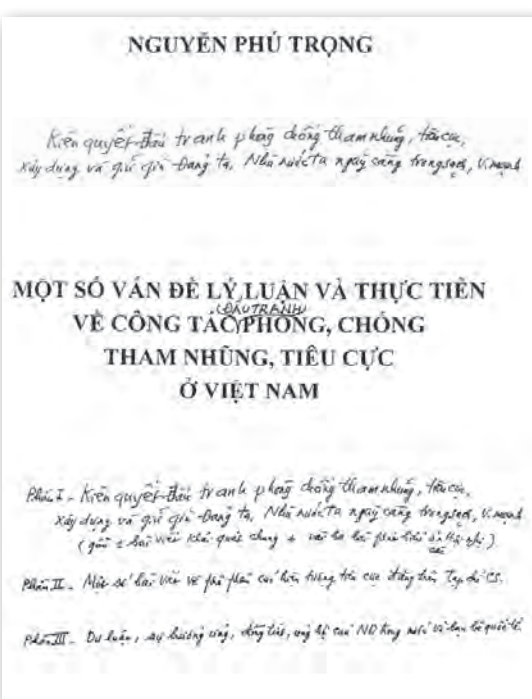 NGUYỄN PHÚ TRỌNG
Kiên quyết đấu tranh phòng chống tham nhũng, tiêu cực,
xây dựng và giữ gìn Đảng ta, Nhà nước ta ngày càng trong sạch, v. mạnh
MỘT SỐ VẤN ĐỀ LÝ LUẬN VÀ THỰC TIỄN
(ĐẤU TRANH)
VỀ CÔNG TÁC PHÒNG, CHỐNG
THAM NHŨNG, TIÊU CỰC
Ở VIỆT NAM
Phần I - Kiên quyết đấu tranh phòng chống tham nhũng, tiêu cực,
xây dựng và giữ gìn Đảng ta, Nhà nước ta ngày càng trong sạch, v. mạnh
(gồm 1 bài viết khái quát chung + các bài phát biểu ở Hội nghị).
Phần II - Một số bài viết về phê phán các hiện tượng tiêu cực đăng trên Tạp chí CS.
Phần III - Dư luận, sự hưởng ứng, đồng tình, ủng hộ của ND trong nước và bạn bè quốc tế.